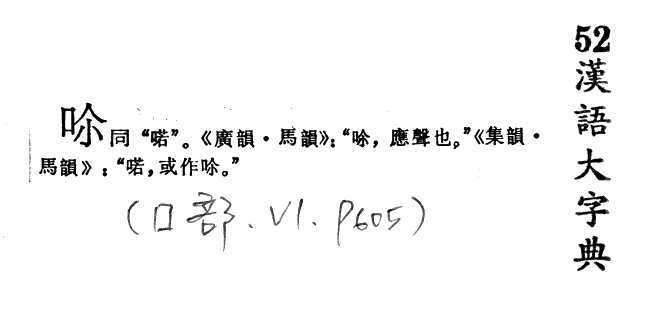 52 漢語大字典
𠰒同“喏”。《廣韻·馬韻》:“𠰒，應聲也。”《集韻·
馬韻》:“喏，或作𠰒。”
(口部. V1. P605)